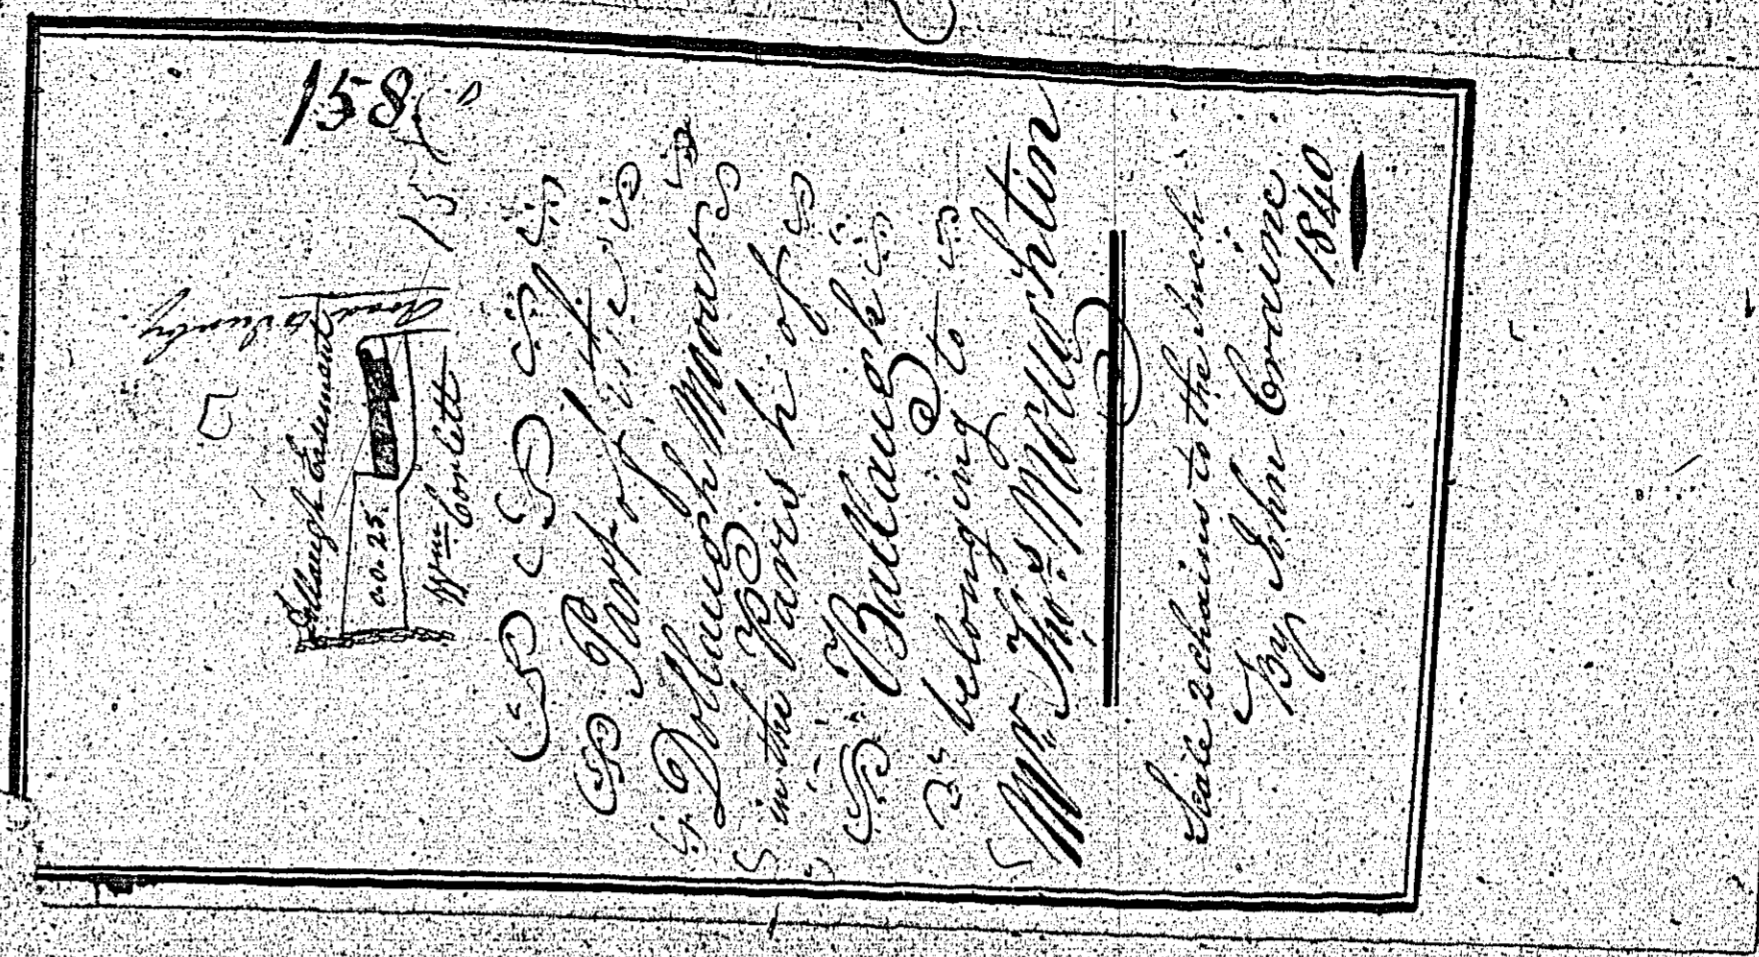 158
15
Road to Sumby
Ballaugh Easement
0.0.25.
Wm Corlett
Part of the
Dollaugh Mooar
in the Parish of
Ballaugh
belonging to
Mr. Thos. Moughtin
Scale 2 chains to the Inch
By John Craine
1840